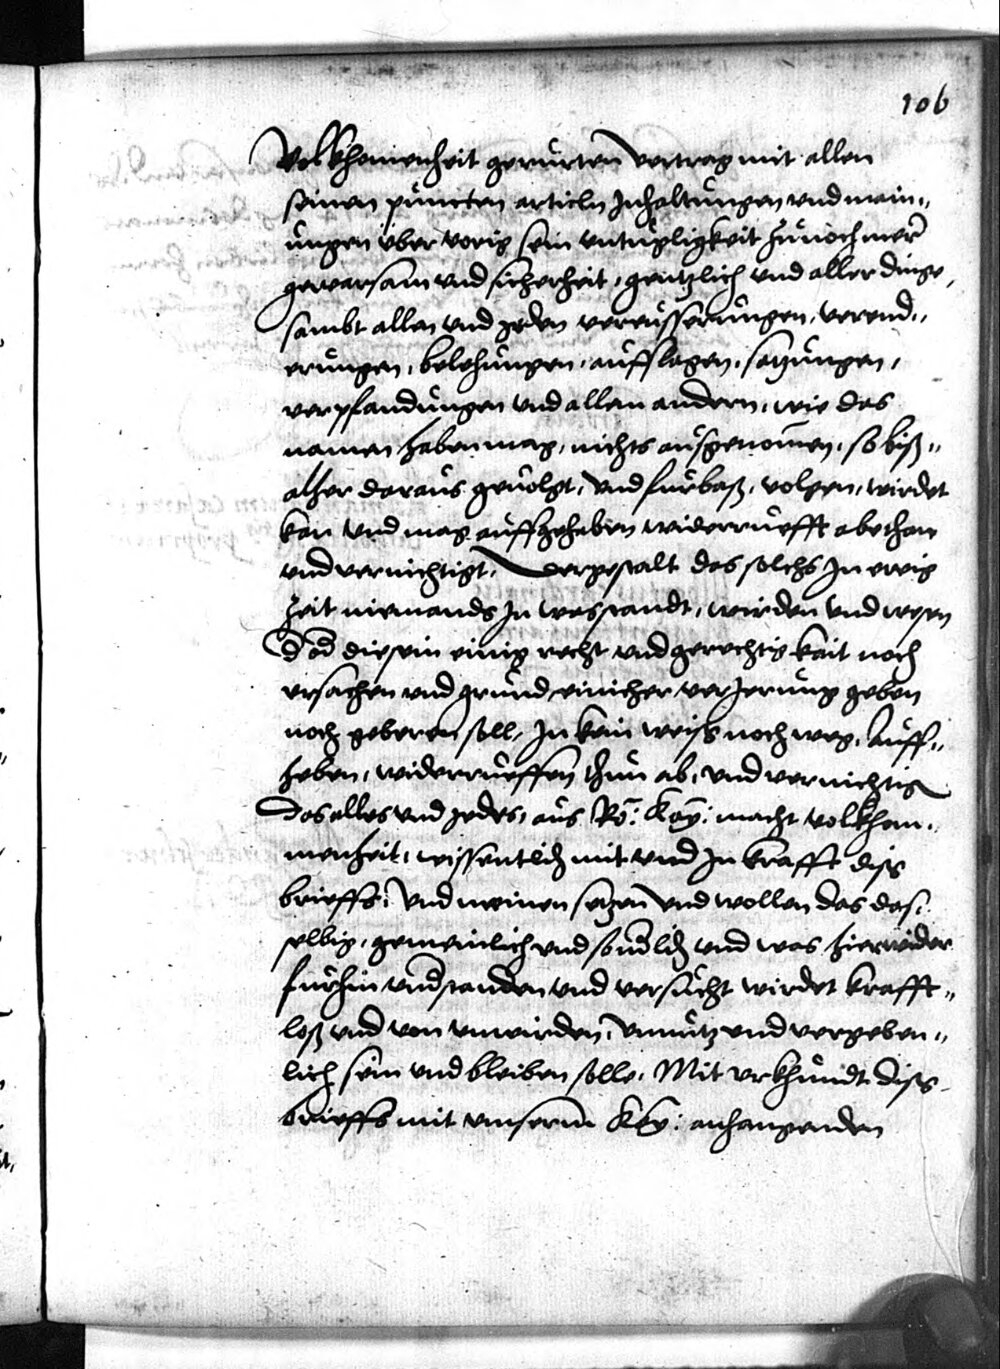 106
Volkhomenheit gerurten vertrag mit allen
seinen puncten articln Inhaltungen vnd main„
ungen über vorig sein vntugligkeit zu noch mer
gewarsam vnd sicherheit, gentzlich vnd aller dinge,
sambt allen vnd yeden vereusserungen, verend„
erungen, belehungen, aufflagen, satzungen,
verpfandungen vnd allem andern, wie das
namen haben mag, nichts ausgenomen, so biß„
alher daraus geuolgt, vnd furbaß, volgen, wirdet
kan vnd mag auffgehaben widerruefft abethan
vnd vernichtigt, Dergestalt das solchs In ewig
Zeit niemands In was standt, wirden vnd wesen
der sein einig recht vnd gerechtigkait noch
vrsachen vnd grund einicher verJerung geben
noch geberen soll, In kein weiß noch weg, Auff„
heben, widerrueffen thun ab, vnd vernichtig
das alles vnd yedes, aus Rö: Kay: macht volkhom„
menheit, wissentlich mit vnd In krafft diß
brieffs, Vnd meinen setzen vnd wollen das das„
selbig, gemeinlich vnd sonderlich vnd was hierwider
furhin vnderstanden vnd versucht wirdet krafft„
loß vnd von vnwirden, vnnutz vnd vergeben„
lich sein vnd bleiben solle, Mit vrkhundt diß
brieffs mit vnserm Kay: anhangenden